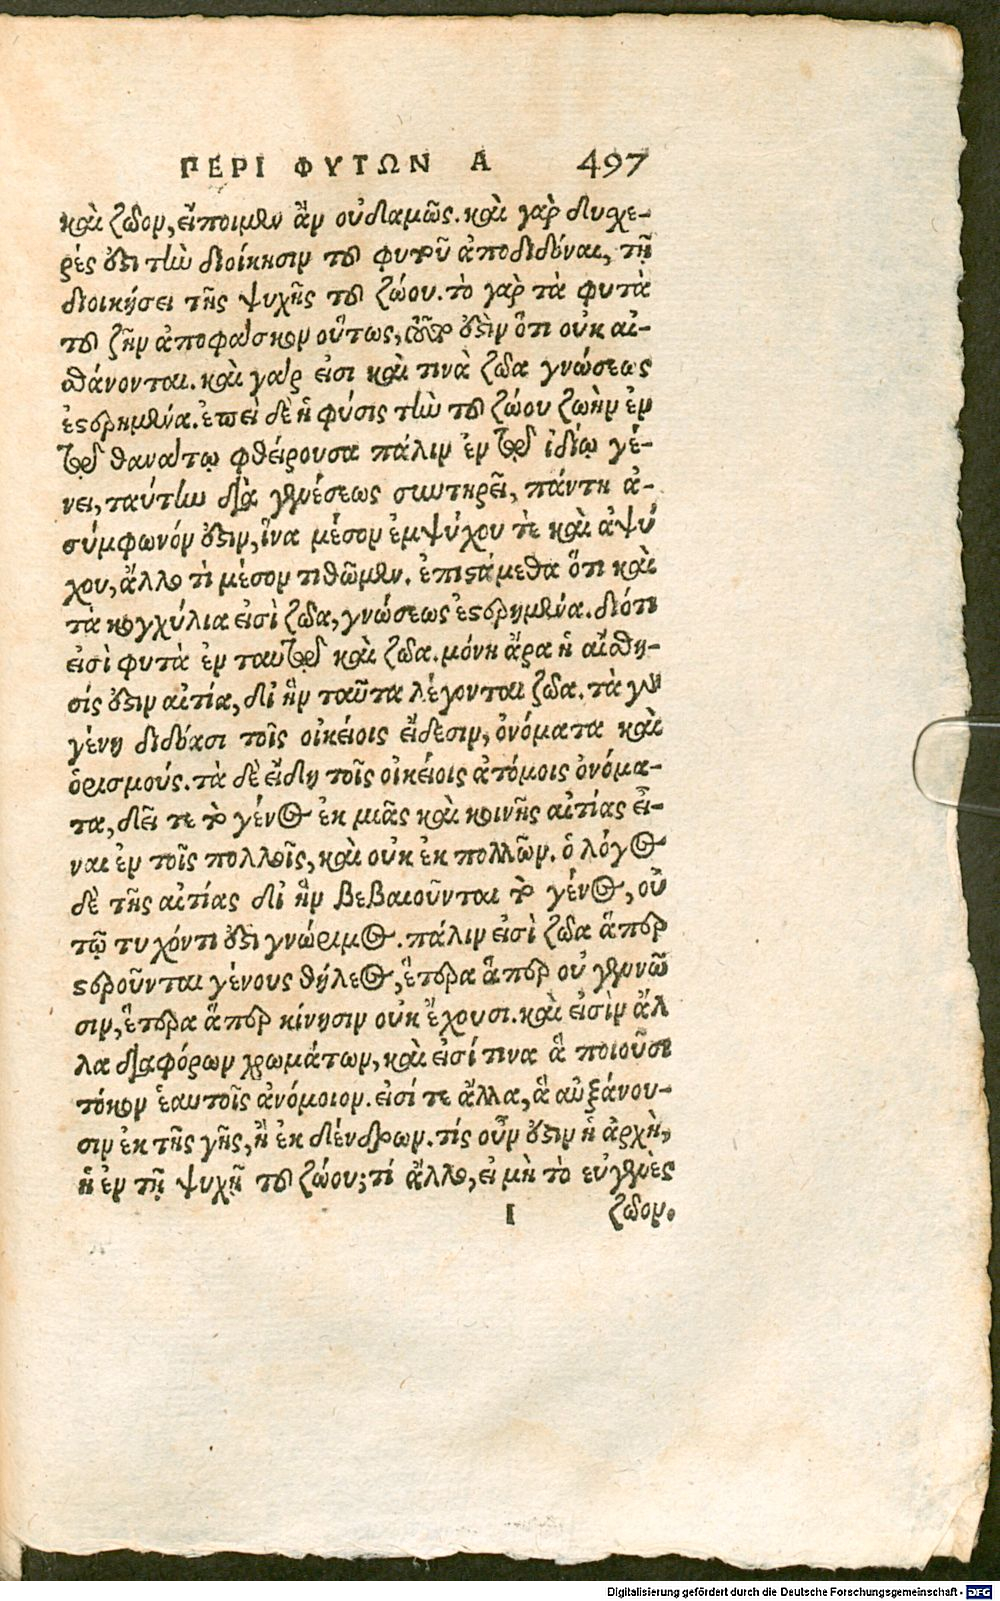 ΠΕΡΙ ΦΥΤΩΝ Α 497
καὶ ζῶον, εἴποιμεν ἂν οὐδαμῶς. καὶ γὰρ δυχε-
ρές ἐστι τὴν διοίκησιν τοῦ φυτοῦ ἀποδιδόναι, τῇ
διοικήσει τῆς ψυχῆς τοῦ ζώου. τὸ γὰρ τὰ φυτὰ
τοῦ ζῆν ἀποφάσκον οὕτως, ὥσπερ ἐστὶν ὅτι οὐκ αἰ-
σθάνονται. καὶ γάρ εἰσι καὶ τινὰ ζῶα γνώσεως
ἐστερημένα. ἐπεὶ δὲ ἡ φύσις τὴν τοῦ ζώου ζωὴν ἐν
τῷ θανάτῳ φθείρουσα πάλιν ἐν τῷ ἰδίῳ γέ-
νει, ταύτην διὰ γενέσεως συντηρεῖ, πάντη ἀ-
σύμφωνόν ἐστιν, ἵνα μέσον ἐμψύχου τὲ καὶ ἀψύ
χου, ἄλλο τὶ μέσον τιθῶμεν. ἐπιστάμεθα ὅτι καὶ
τὰ κογχύλια εἰσὶ ζῶα, γνώσεως ἐστερημένα. διότι
εἰσὶ φυτὰ ἐν ταυτῷ καὶ ζῶα. μόνη ἄρα ἡ αἴσθη-
σίς ἐστιν αἰτία, δι ἣν ταῦτα λέγονται ζῶα. τὰ γὰρ
γένη διδόασι τοῖς οἰκείοις εἴδεσιν, ὀνόματα καὶ
ὁρισμούς. τὰ δὲ εἴδη τοῖς οἰκείοις ἀτόμοις ὀνόμα-
τα, δεῖ τε τὸ γένος ἐκ μιᾶς καὶ κοινῆς αἰτίας εἶ-
ναι ἐν τοῖς πολλοῖς, καὶ οὐκ ἐκ πολλῶν. ὁ λόγος
δὲ τῆς αἰτίας δι ἣν βεβαιοῦνται τὸ γένος, οὐ
τῷ τυχόντι ἐστι γνώριμος. πάλιν εἰσὶ ζῶα ἅπερ
στεροῦνται γένους θήλεος, ἕτερα ἅπερ οὐ γεννῶ
σιν, ἕτερα ἅπερ κίνησιν οὐκ ἔχουσι. καὶ εἰσὶν ἄλ
λα διαφόρων χρωμάτων, καὶ εἰσί τινα ἃ ποιοῦσι
τόκον ἑαυτοῖς ἀνόμοιον. εἰσί τε ἄλλα, ἃ αὐξάνου-
σιν ἐκ τῆς γῆς, ἢ ἐκ δένδρων. τίς οὖν ἐστιν ἡ ἀρχὴ,
ἡ ἐν τῇ ψυχῇ τοῦ ζώου; τί ἄλλο, εἰ μὴ τὸ εὐγενὲς
I ζῶον.
Digitalisierung gefördert durch die Deutsche Forschungsgemeinschaft - DFG